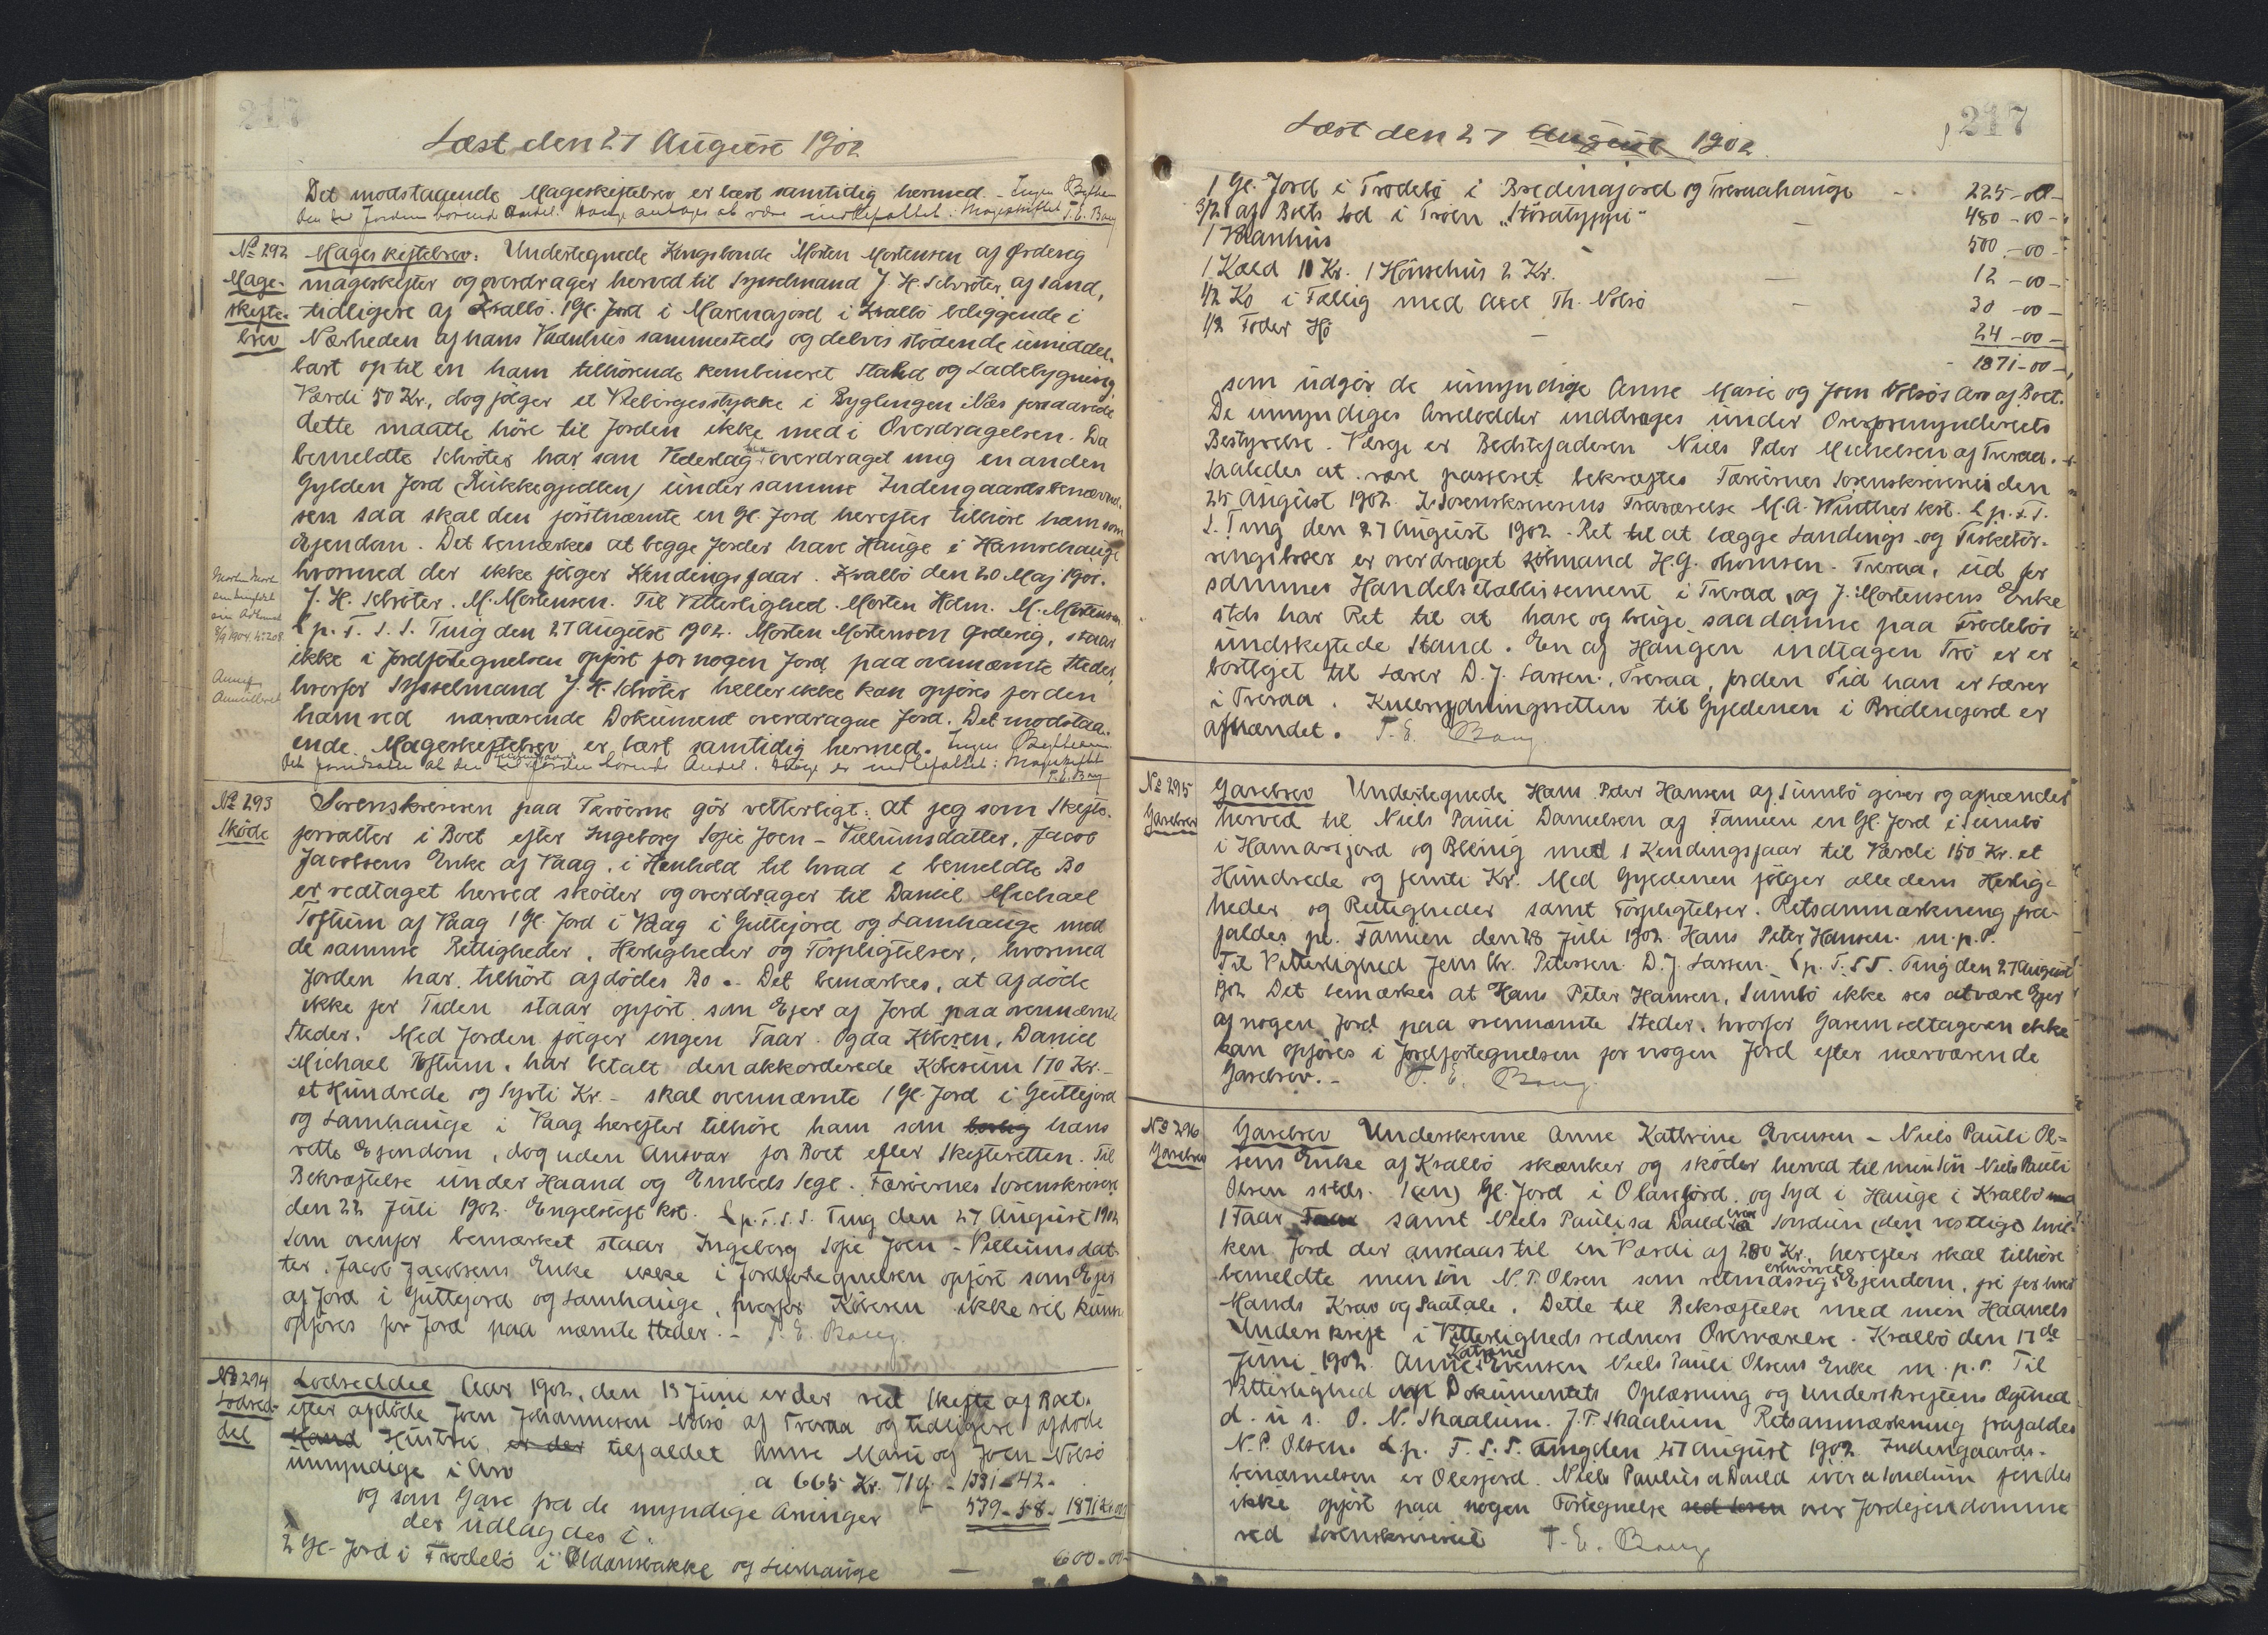 217
Læst den 27 August 1902
Det modstaaende Mageskiftebrev er læst samtidig hermed. - Ingen Bythen
den til Jorden hørende Andel i Hauge antages at være indbefattet i Mageskiftet T. E. Bang
No 292 Mageskiftebrev. Undertegnede Kongsbonde Morten Mortensen af Ørdevig
Mage- mageskifter og overdrager herved til Sysselmand J. H. Schrøter af Sand,
skifte- tidligere af Kvalbø. 1 Gl. Jord i Marenajord i Kvalbø beliggende i
brev Nærheden af hans Vaanhus sammesteds og delvis stødende umiddel-
bart op til en ham tilhørende kombineret Stald og Ladebygning
Værdi 50 Kr., dog følger et Klebergesstykke i Byglingen i Næs forsaavidt
dette maatte høre til Jorden ikke med i Overdragelsen. Da
bemeldte Schrøter har som Vederlag overdraget mig en anden
Gylden Jord (Rukkegjedlen) under samme Indengaardsbenævnel-
sen saa skal den førstnævnte en Gl. Jord herefter tilhøre ham som
Ejendom. Det bemærkes at begge Jorder have Hauge i Hamrehauge
hvormed der ikke følger Kendingsfaar. Kvalbø den 20 Maj 1901.
J. H. Schrøter. M. Mortensen. Til Vitterlighed. Morten Holm. M. Mortensen
L p. T. S. S. Ting den 27 August 1902. Morten Mortensen Ørdevig, staar
ikke i Jordfortegnelsen opført for nogen Jord paa ovennævnte Steder,
hvorfor Sysselmand J. H. Schrøter heller ikke kan opføres for den
ham ved nærværende Dokument overdragne Jord. Det modstaa-
ende Mageskiftebrev er læst samtidig hermed. Ingen Bythen
T. E. Bang
No 293 Sorenskriveren paa Færøerne gør vetterligt: at jeg som Skifte-
Skøde forvalter i Boet efter Ingeborg Sofie Joen-Villumsdatter, Jacob
Jacobsens Enke af Vaag, i Henhold til hvad i bemeldte Bo
er vedtaget herved skøder og overdrager til Daniel Michael
Toftum af Vaag 1 Gl. Jord i Vaag i Guttejord og Lamhauge med
de samme Rettigheder, Herligheder og Forpligtelser, hvormed
Jorden har tilhørt afdødes Bo. - Det bemærkes, at afdøde
ikke for Tiden staar opført som Ejer af Jord paa ovennævnte
Steder. Med Jorden følger ingen Faar. Og da Køberen, Daniel
Michael Toftum, har betalt den akkorderede Købesum 170 Kr. -
et Hundrede og Syvti Kr. - skal ovennævnte 1 Gl. Jord i Guttejord
og Lamhauge i Vaag herefter tilhøre ham som hans
rette Ejendom, dog uden Ansvar for Boet eller Skifteretten. Til
Bekræftelse under Haand og Embeds Segl. Færøernes Sorenskriveri
den 22 Juli 1902. Engelstoft kst. L p. T. S. S. Ting den 27 August 1902
Som ovenfor bemærket staar Ingeborg Sofie Joen-Villumsdat-
ter, Jacob Jacobsens Enke ikke i Jordfortegnelsen opført som Ejer
af Jord i Guttejord og Lamhauge, hvorfor Køberen ikke vil kunne
opføres for Jord paa nævnte Steder. - T. E. Bang.
No 294 Lodseddel Aar 1902, den 13 Juni er der ved Skifte af Boet
Lodsed- efter afdøde Joen Johannesen Nolsø af Tveraa og tidligere afdøde
del Mand Hustru, er der tilfaldet Anne Marie og Joen Nolsø
umyndige i Arv a 665 Kr. 71 Ø. - 1331 - 42 -
og som Gave fra de myndige Arvinger - 539 - 58 - 1871 Kr 00
der udlagdes i:
2 Gl. Jord i Frodebø i Oldansbakke og Lierhauge - 600 - 00
217
Læst den 27 August 1902
1 Gl. Jord i Frodebø i Bredinajord og Tveraahauge - 225 - 00 -
3/12 af Boets Lod i Trøen "Støratyppi" - 480 - 00 -
1 Vaanhus - 500 - 00 -
1 Kæld 10 Kr. 1 Hønsehus 2 Kr. - 12 - 00 -
1/2 Ko i Fællig med Axel Th. Nolsø - 30 - 00 -
1/2 Foder Hø - 24 - 00 -
1871 - 00 -
som udgør de umyndige Anne Marie og Joen Nolsøs Arv af Boet.
De umyndiges Arvelodder inddrages under Overformynderiets
Bestyrelse. Værge er Bedstefaderen Niels Peder Michelsen af Tveraa.
Saaledes at være passeret bekræftes Færøernes Sorenskriveri den
25 August 1902. I Sorenskriverens Fraværelse M. A. Winther kst. L p. T.
S. Ting den 27 August 1902. - Ret til at lægge Landings- og Fisketør-
ringsbroer er overdraget Købmand H. G. Thomsen. Tveraa, ud for
sammes Handelsetablissement i Tveraa, og J. Mortensens Enke
stds har Ret til at have og bruge saadanne paa Frodebøs
uudskiftede Stand. En af Haugen indtagen Trø er er
bortlejet til Lærer D. J. Larsen, Tveraa, for den Tid han er Lærer
i Tveraa. Kulbrydningsretten til Gyldenen i Bredengjord er
afhændet. T. E. Bang.
No 295 Gavebrev Undertegnede Hans Peter Hansen af Sumbø giver og afhænder
Gavebrev herved til Niels Pauli Danielsen af Famien en Gl. Jord i Sumbø
i Hamarsjord og Bøling med 1 Kendingsfaar til Værdi 150 Kr. et
Hundrede og femti Kr. Med Gyldenen følger alle dens Herlig-
heder og Rettigheder samt Forpligtelser. Retsanmærkning fra-
faldes. pt. Famien den 28 Juli 1902. Hans Peter Hansen. m. p. P.
Til Vitterlighed Jens Chr. Petersen. D. J. Larsen. L p. T. S S. Ting den 27 August
1902 Det bemærkes at Hans Peter Hansen, Sumbø ikke ses at være Ejer
af nogen Jord paa ovennævnte Steder, hvorfor Gavemodtageren ikke
kan opføres i Jordfortegnelsen for nogen Jord efter nærværende
Gavebrev. - T. E. Bang.
No 296 Gavebrev Underskrevne Anne Kathrine Evensen - Niels Pauli Ol-
Gavebrev sens Enke af Kvalbø skænker og skøder herved til min Søn Niels Pauli
Olsen stds. 1 (en) Gl. Jord i Olavsjord og Syd i Hauge i Kvalbø med
1 Faar Faar samt Niels Paulisa Daild iver a Sondun (den vestlige) hvil-
ken Jord der anslaas til en Værdi af 200 Kr. herefter skal tilhøre
bemeldte min Søn N. P. Olsen som retmæssig erhvervet Ejendom, fri for hver
Mands Krav og Paatale. Dette til Bekræftelse med min Haands
Underskrift i Vitterligheds vidners Overværelse. Kvalbø den 17de
Juni 1902. Anne Katrine Evensen Niels Pauli Olsens Enke m. p. P. Til
Vitterlighed om Dokumentets Oplæsning og Underskriftens Ægthed
d. u. s. O. N. Skaalum. J. P. Skaalum. Retsanmærkning frafaldes
N. P. Olsen. L p. T. S. S. Ting den 27 August 1902. Indengaards-
benævnelsen er Olesjord. Niels Paulisa Daild iver a Sondum findes
ikke opført paa nogen Fortegnelse ved Soren over Jordejendomme
ved Sorenskriveriet T. E. Bang